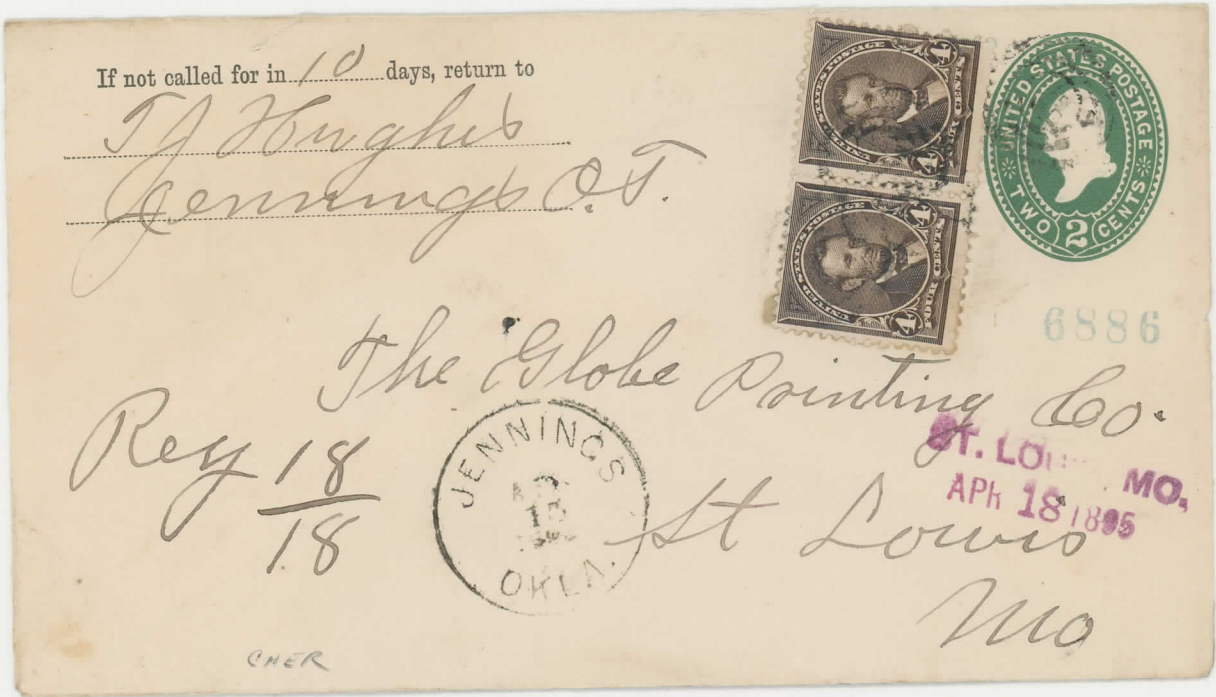 If not called for in 10 days, return to
T J Hughes
Jennings O.T.
UNITED STATES POSTAGE
4 CENTS
FOUR
4
UNITED STATES POSTAGE
4
FOUR CENTS
4
UNITED STATES POSTAGE
TWO 2 CENTS
6886
The Globe Printing Co.
St Louis
Mo
Reg 18
18
JENNINGS
OKLA.
ST. LOUIS MO.
APR 18 1895
CHER